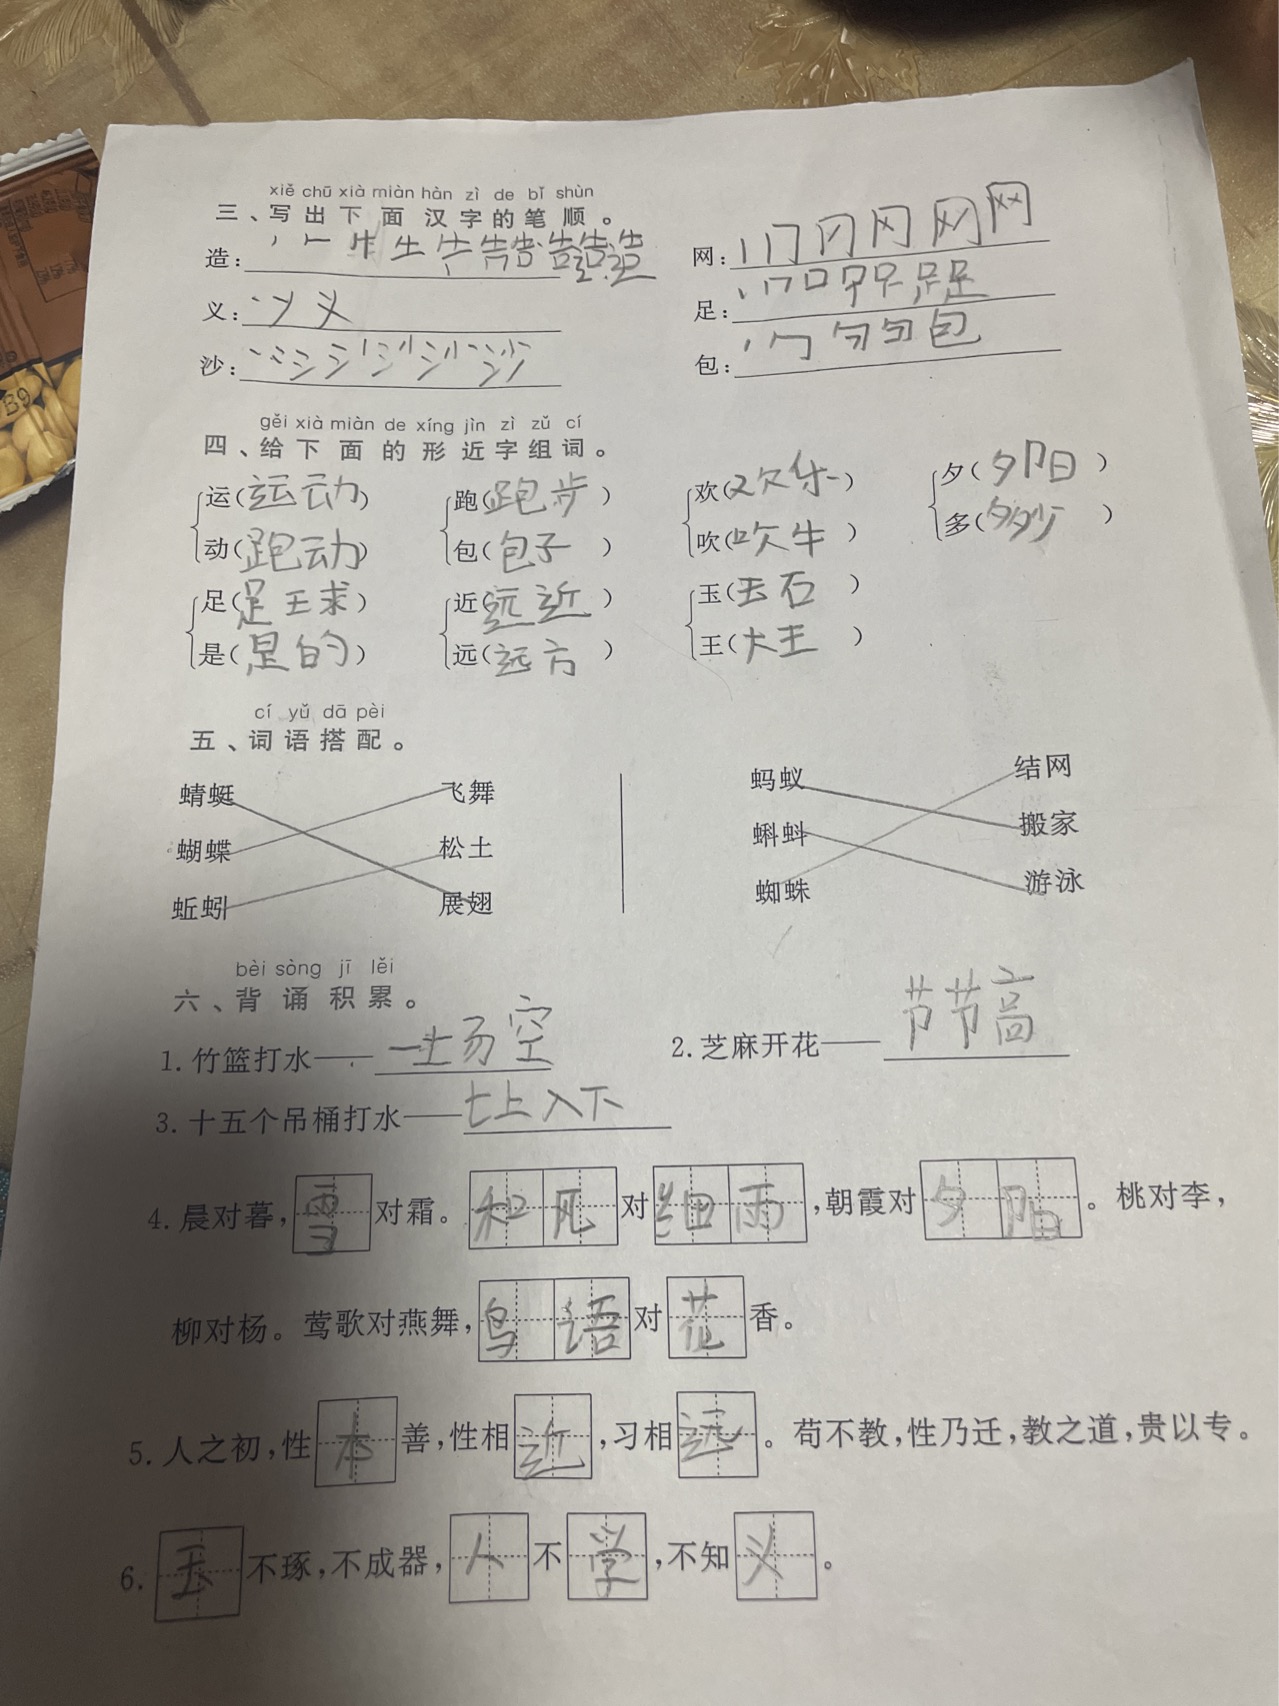 xiě chū xià miàn hàn zì de bǐ shùn
三、写出下面汉字的笔顺。
造:
网:
义: 丶 丷 义
足:
沙:
包:
gěi xià miàn de xíng jìn zì zǔ cí
四、给下面的形近字组词。
运(运动) 跑(跑步) 欢(欢乐) 夕(夕阳)
动(跑动) 包(包子) 吹(吹牛) 多(多少)
足(足王求) 近(远近) 玉(玉石)
是(是的) 远(远方) 王(大王)
cí yǔ dā pèi
五、词语搭配。
蜻蜓 飞舞 蚂蚁 结网
蝴蝶 松土 蝌蚪 搬家
蚯蚓 展翅 蜘蛛 游泳
bèi sòng jī lěi
六、背诵积累。
1. 竹篮打水——一场空 2. 芝麻开花——节节高
3. 十五个吊桶打水——七上入下
4. 晨对暮,雪对霜。和风对细雨,朝霞对夕阳。桃对李,
柳对杨。莺歌对燕舞,鸟语对花香。
5. 人之初,性本善,性相近,习相远。苟不教,性乃迁,教之道,贵以专。
6. 玉不琢,不成器,人不学,不知义。
B9